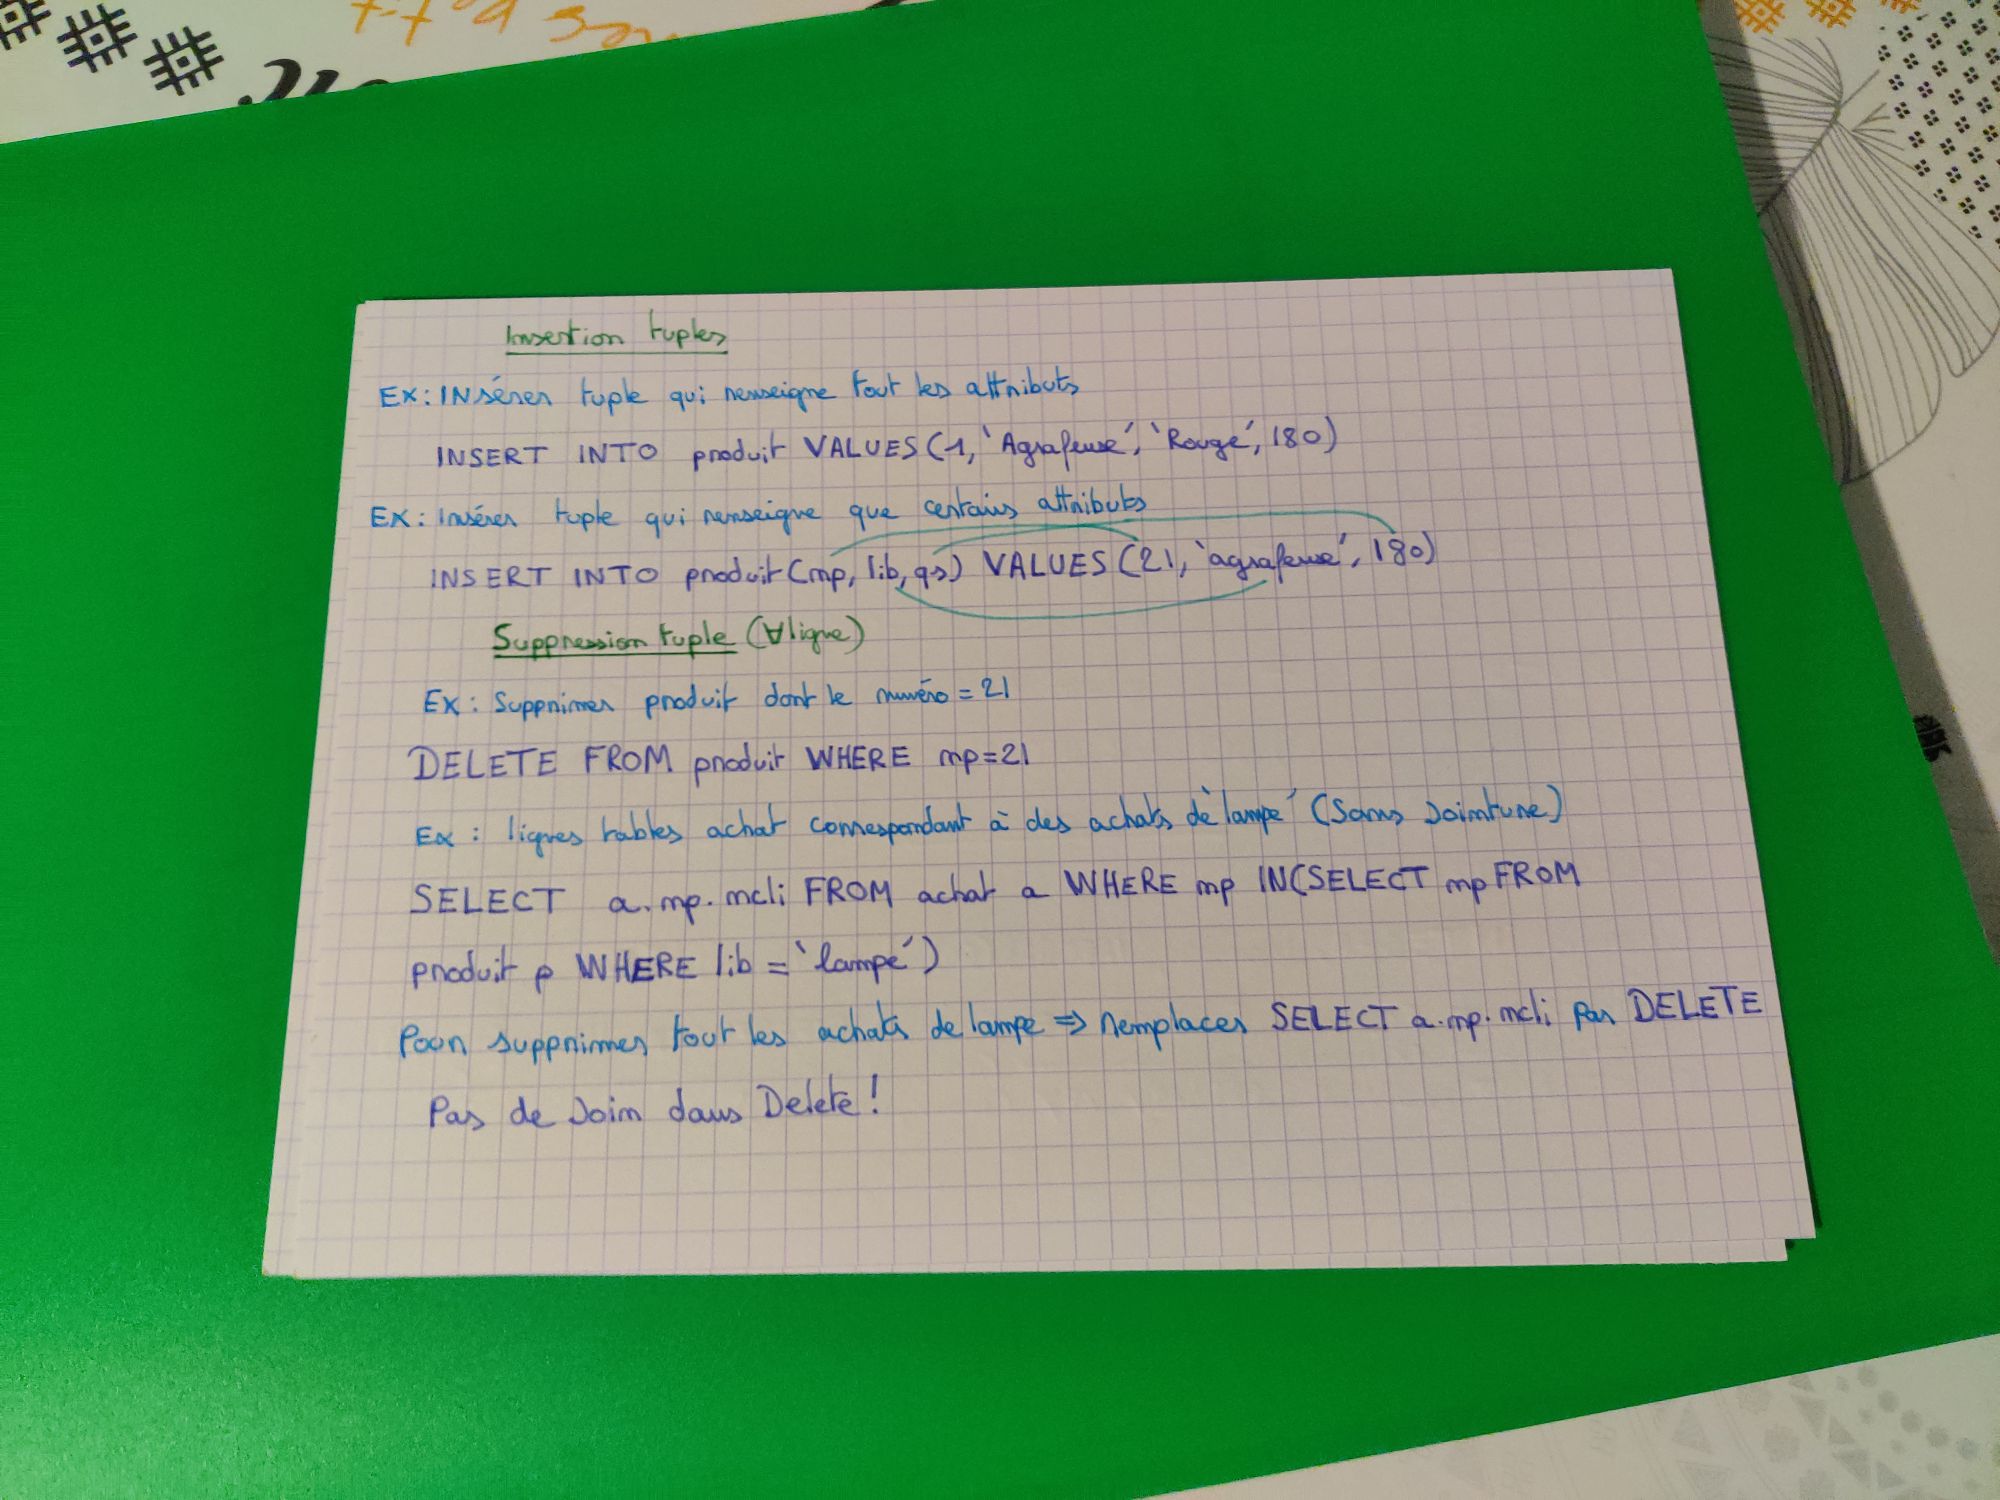 Insertion tuples
Ex: INsérer tuple qui renseigne tout les attributs
INSERT INTO produit VALUES (1, 'Agrafeuse', 'Rouge', 180)
Ex: Insérer tuple qui renseigne que certains attributs
INSERT INTO produit (np, lib, qs) VALUES (21, 'agrafeuse', 180)
Suppression tuple (∀ ligne)
Ex: Supprimer produit dont le numéro = 21
DELETE FROM produit WHERE np=21
Ex: lignes tables achat correspondant à des achats de 'lampe' (Sans Jointure)
SELECT a.np.ncli FROM achat a WHERE np IN(SELECT np FROM
produit p WHERE lib = 'lampe')
Pour supprimer tout les achats de lampe => remplacer SELECT a.np.ncli par DELETE
Pas de Join dans Delete!